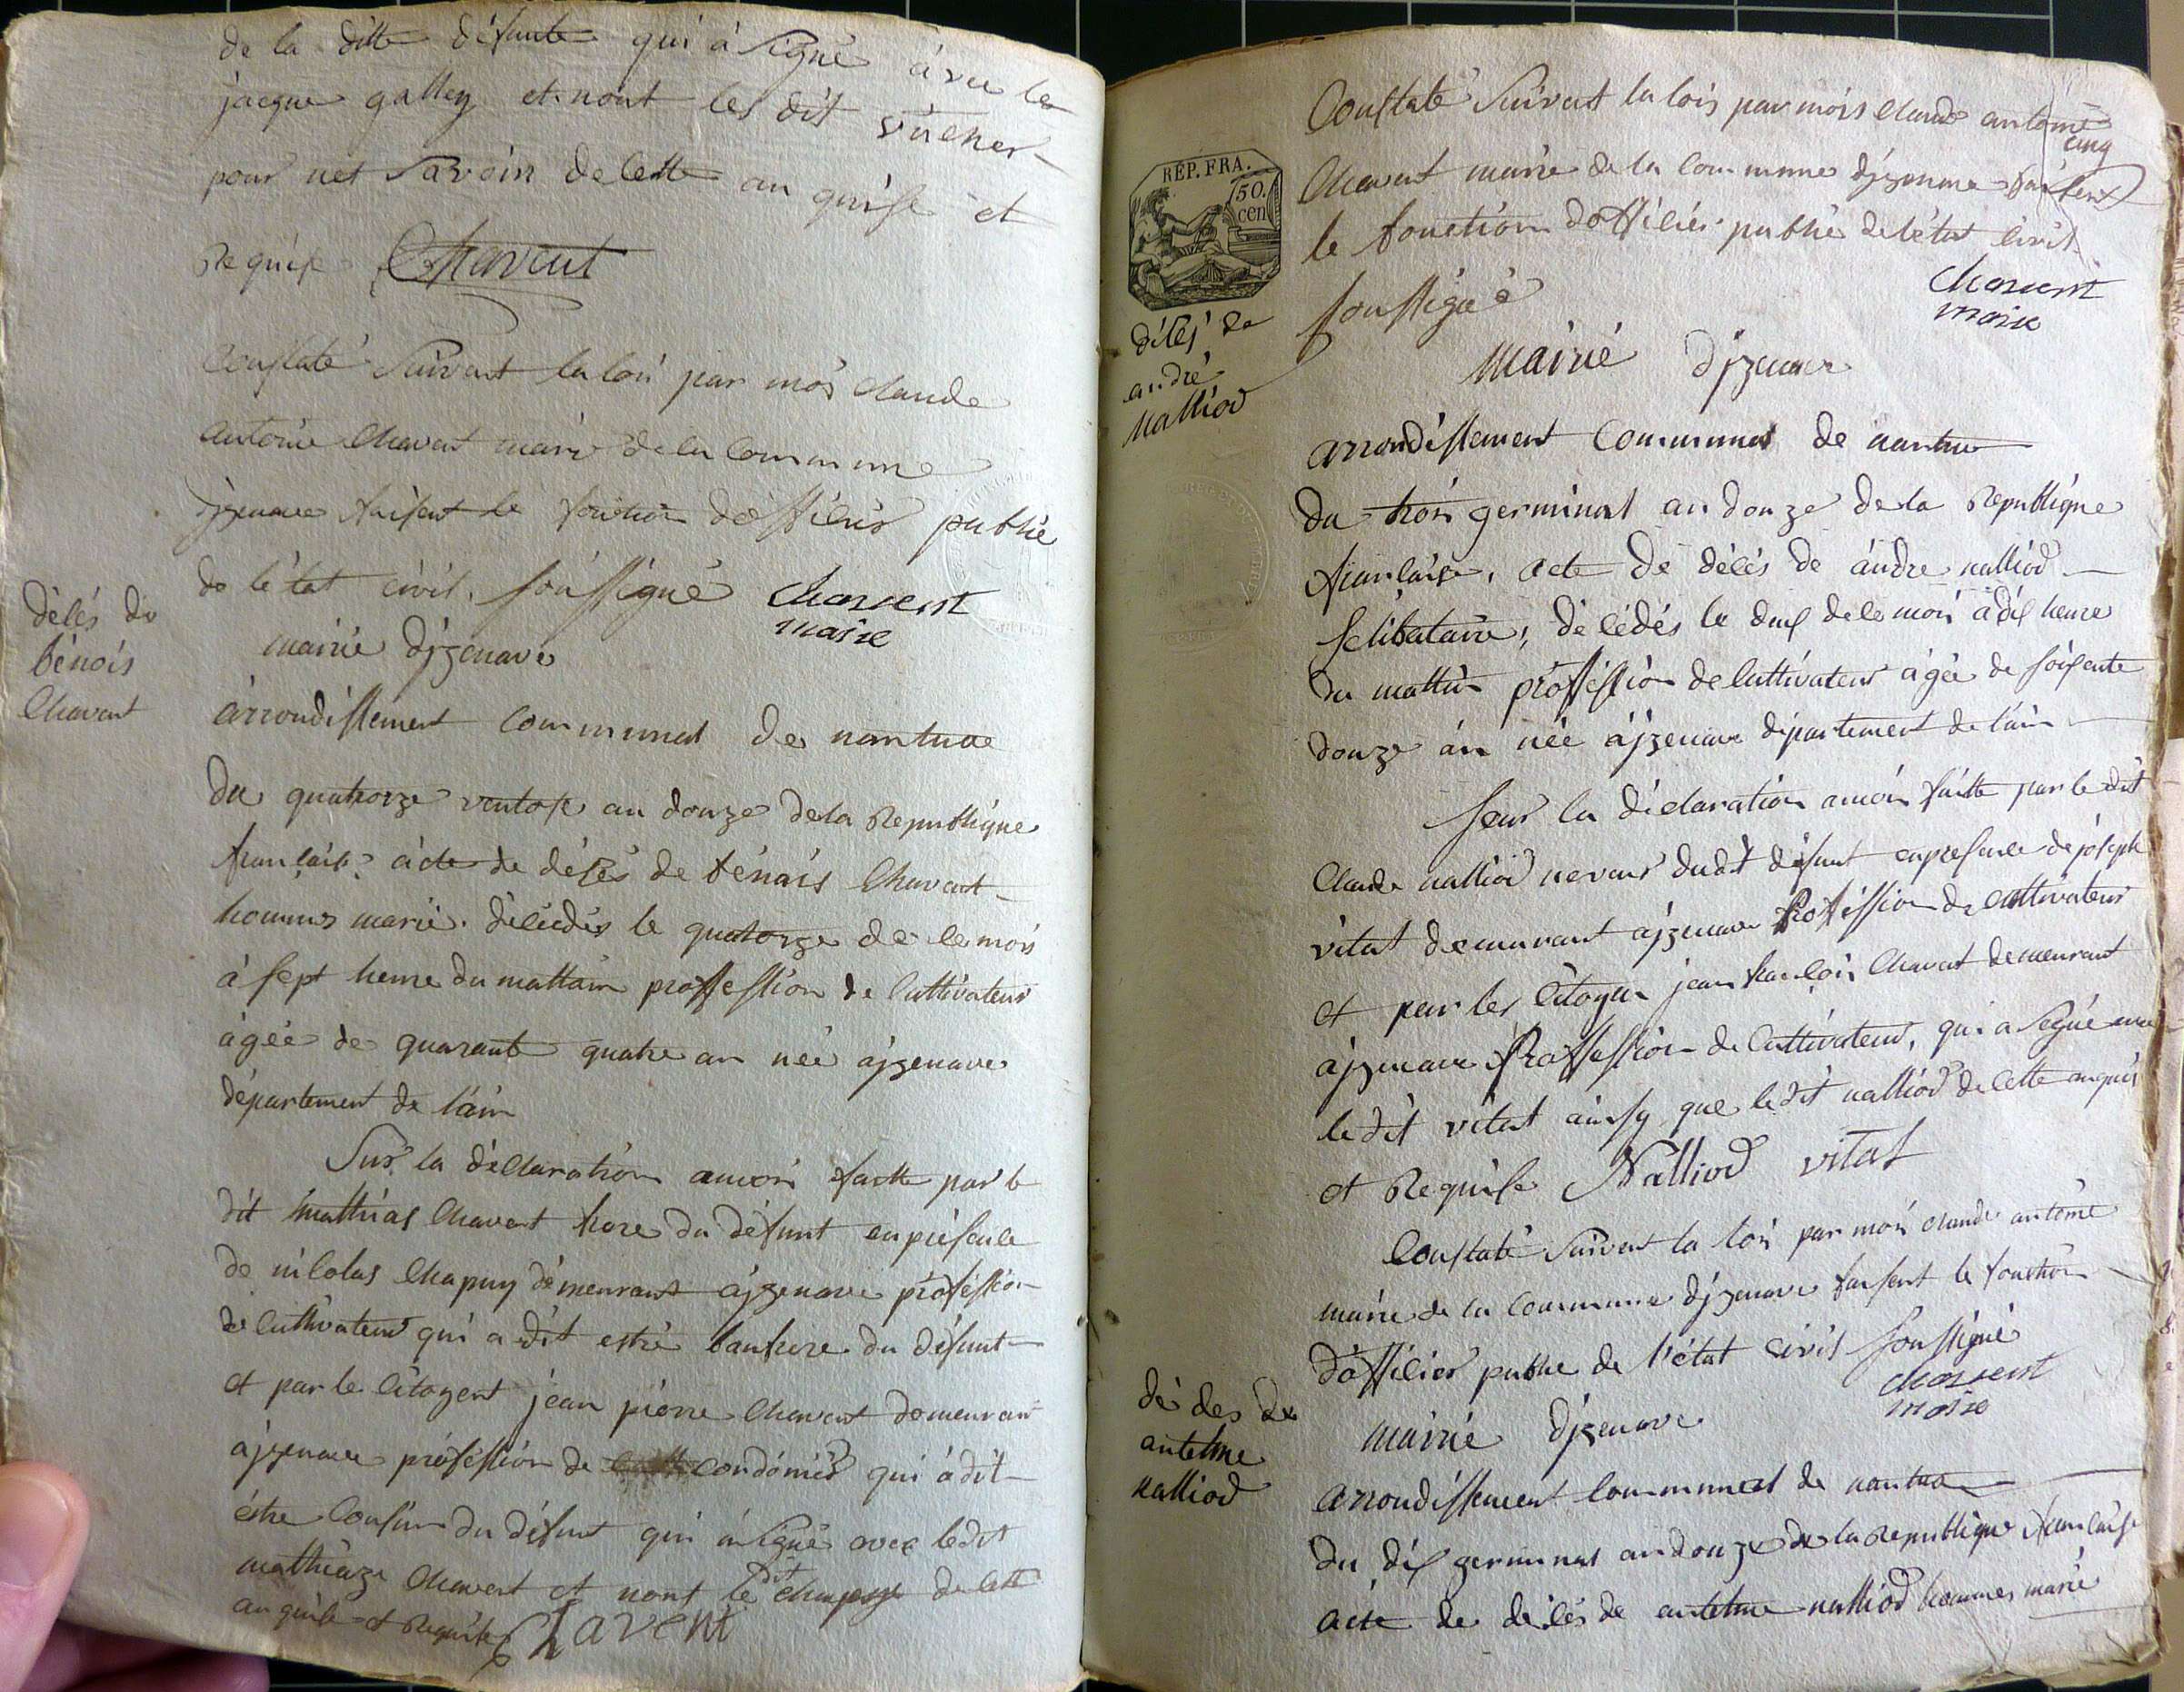 de la ditte défunte qui à Signé àvec le
jacque galley et nont les dit
pour net Savoir de cette an quise et
Requise Chavent
Constaté Suivant la loi par mois Claude
antoine Chavent maire de la Commune
djzenave faisent le fonction dofficier publie
de l'état civil. soussigné Chavent
maire
décés de
bénois
Chavent
mairie djzenave
àrrondissement communal de nantua
du quatorze ventose an douze de la Republique
française. acte de décés de bénois Chavent
hommes marié. décédés le quatorze de ce mois
à sept heure du mattain proffession de Cultivateur
àgée de quarante quatre an née ajzenave
département de l'ain
Sur la déclaration amoi faitte par le
dit mathias Chavent frere du défunt enpresence
de nicolas Chapuy démeurant ajzenave profession
de Cultivateur qui a dit estre baufrere du défunt
et par le Citoyent jean piérre Chavent demeurant
àjzenave proféssion de condonier qui à dit
étre Cousin du défunt qui à signé avec ledit
mathiaze Chavent et nont le dit chapuy de cette
an quise et Requise Chavent
REP. FRA.
50.
cen
cinq
Constaté Suivant la lois par mois claude antoine
Chavent maire de la Commune djzenave faisent
le fonction dofficier publie de l'état civil
soussigé Chavent
maire
décés de
andré
Nalliod
Mairie djzenave
arrondissement Communal de nantua
du trois germinal an douze de la Republique
française, acte de décés de àndre nalliod
selibataire, décédés le deux de ce mois à dix heure
du mattin proffession de Cultivateur àgée de soisente
douze àn née àjzenave département de l'ain
Seur la déclaration amois faitte par le dit
Claude nalliod neveur dudit défunt enpresence de joseph
vitat demeurant ajzenave Proffession de Cultivateur
et par les Citoyen jean francois Chavent demeurant
àjzenave Proffession de Cultivateur, qui a Segné avec
le dit vitat ainsy que ledit nalliod de cette anquis
et Requise Nalliod vitat
Constaté Suivent la loi par mois claude antoine
maire de la Commune djzenave faisent le fonction
dofficier publie de l'état civil soussigné
Chavent
maire
dé des de
antelme
nalliod
mairie djzenave
arrondissement Communal de nantua
du dix germinal an douze de la Republique française
acte de décés de antelme nalliod hommes marié